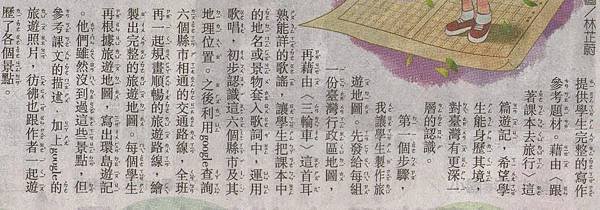 圖／林芷蔚
提供學生完整的寫作
參考題材。藉由〈跟
著課文去旅行〉這
篇遊記，希望學
生能身歷其境，
對臺灣有更深一
層的認識。
第一個步驟，
我讓學生製作旅
遊地圖。先發給每組
一份臺灣行政區地圖，
再藉由〈三輪車〉這首耳
熟能詳的歌謠，讓學生把課本中
的地名或景物套入歌詞中，運用
歌唱，初步認識這六個縣市及其
地理位置。之後利用google查詢
六個縣市相通的交通路線，全班
再一起規畫順暢的旅遊路線，繪
製出完整的旅遊地圖。每個學生
再根據旅遊地圖，寫出環島遊記
。他們雖然沒到過這些景點，但
參考課文的描述，加上google的
旅遊照片，彷彿也跟作者一起遊
歷了各個景點。